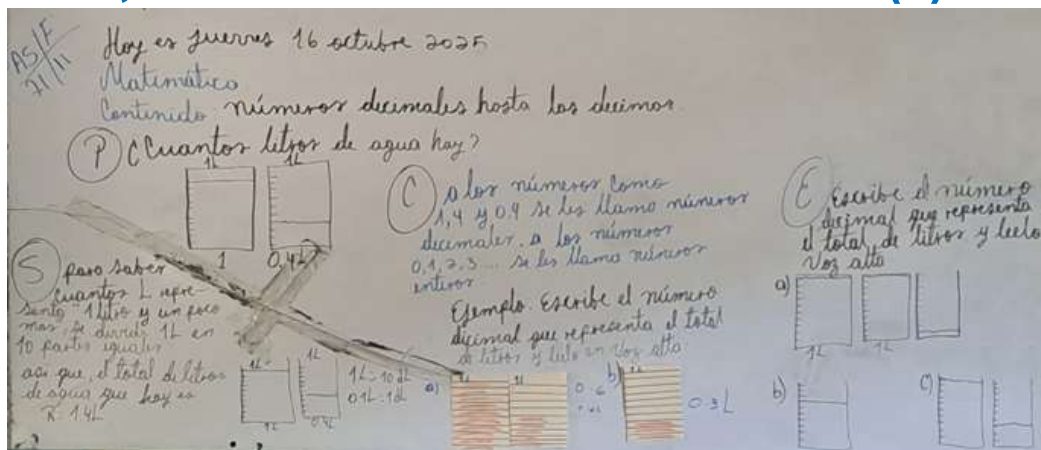 AS/F
21/11
Hoy es jueves 16 octubre 2025
Matemática
Contenido: números decimales hasta las decimas.
P) ¿Cuantos litros de agua hay?
1L
1L
1
0,4L
S) para saber
cuantos L repre-
senta 1 litro y un poco
mas, se divide 1L en
10 partes iguales
asi que, el total de litros
de agua que hay es
R: 1.4L
1L
1L
1L
0,4L
1L = 10 dL
0.1L = 1dL
C) a los números como
1,4 y 0.4 se les llama números
decimales. a los números
0,1,2,3... se les llama números
enteros.
Ejemplo. Escribe el número
decimal que representa el total
de litros y leelo en voz alta.
a)
b)
0.3L
E) Escribe el número
decimal que representa
el total de litros y leelo
Voz alta
a)
1L
1L
b)
c)